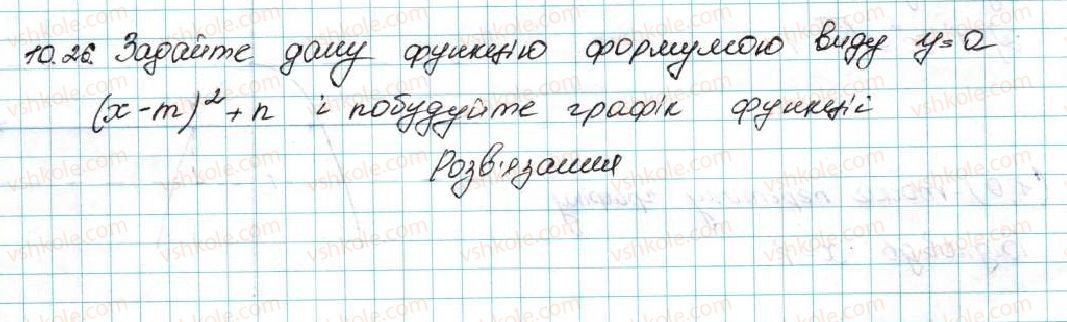 10.26. Задайте дану функцію формулою виду y=a
(x-m)²+n і побудуйте графік функції
Розв'язання